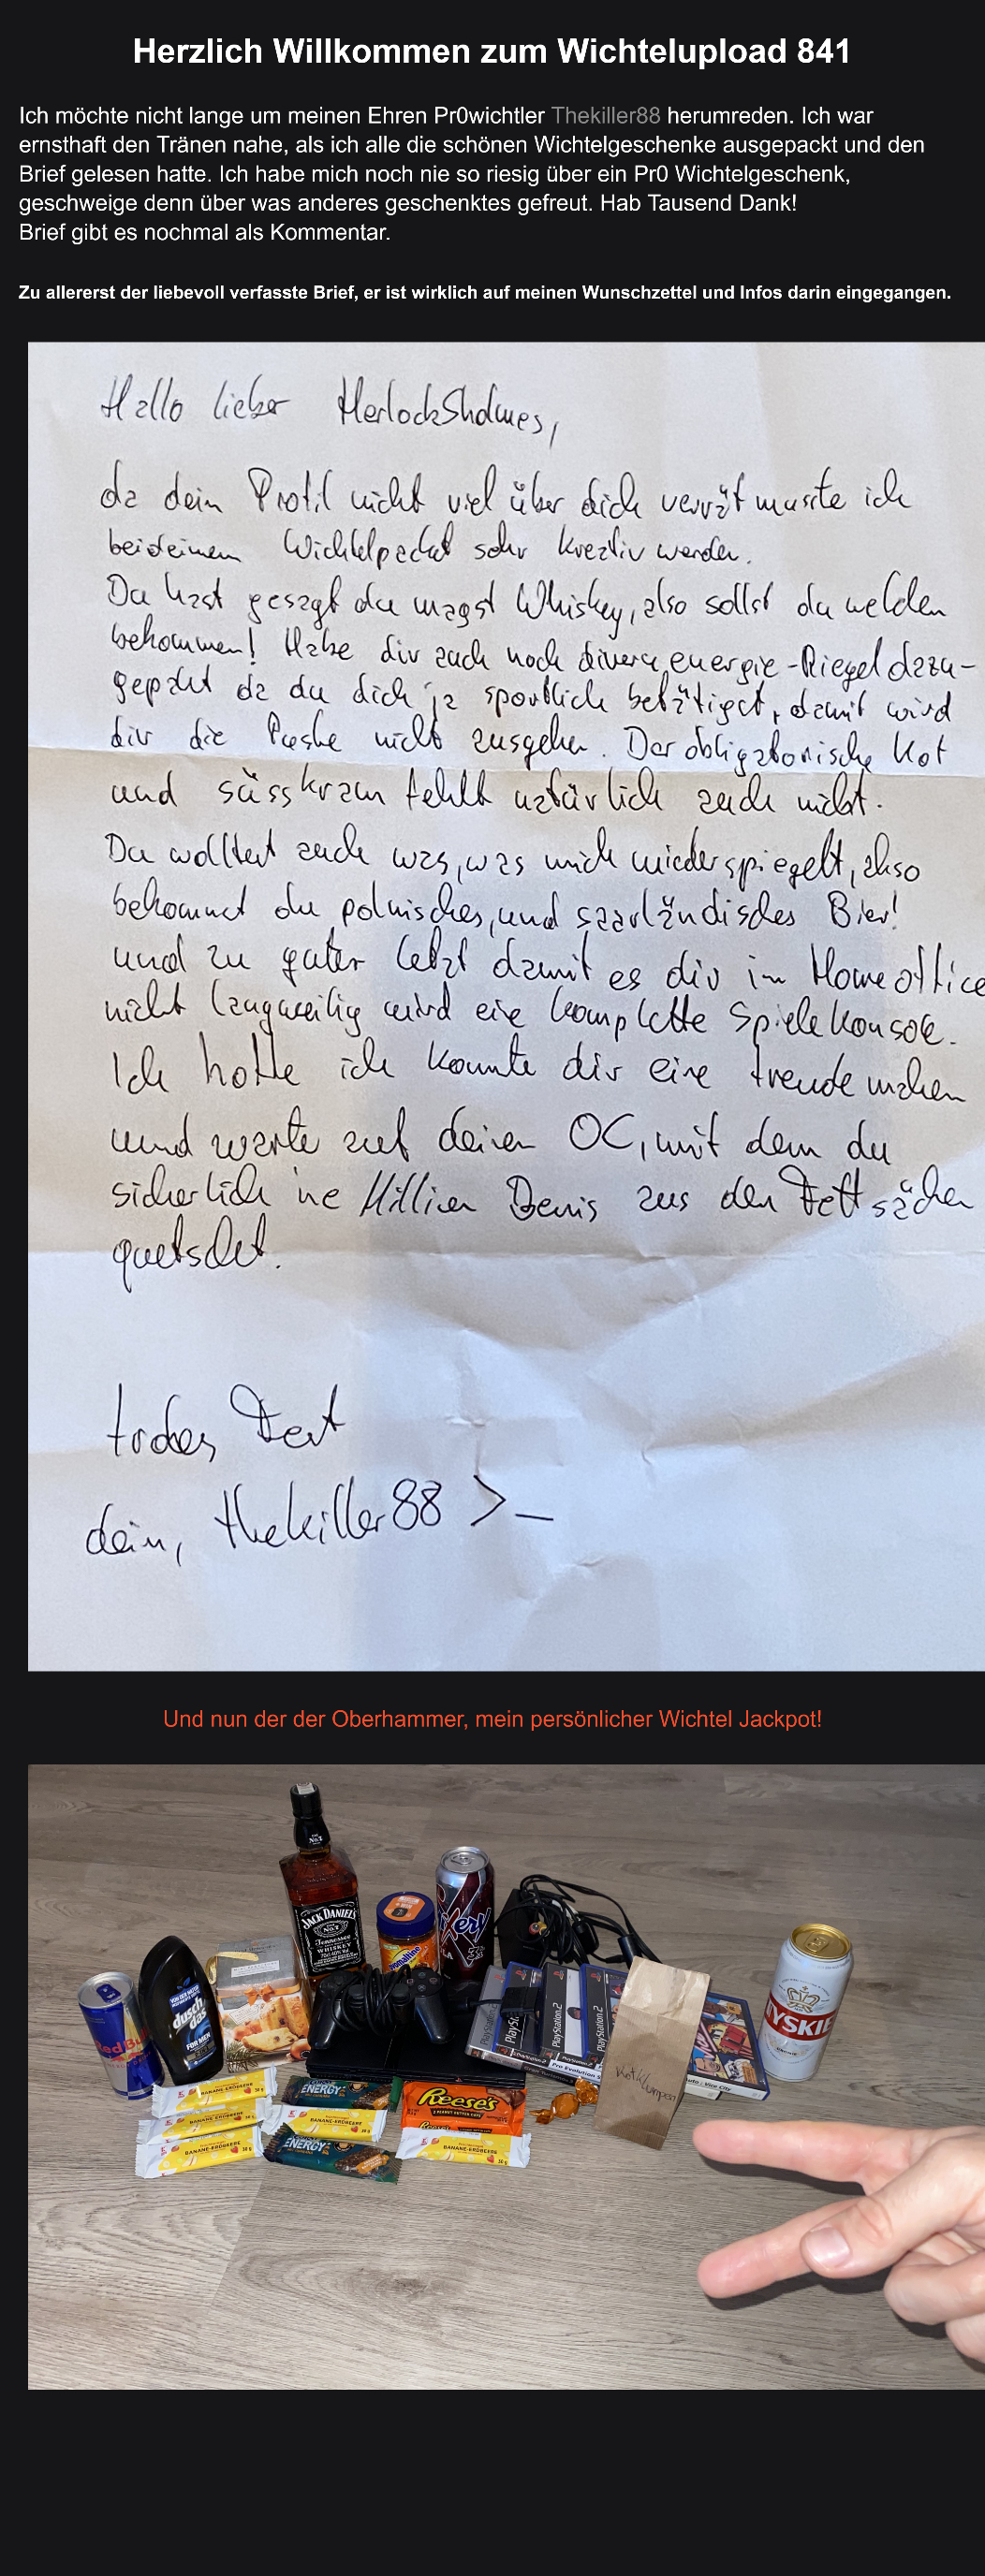 Herzlich Willkommen zum Wichtelupload 841
Ich möchte nicht lange um meinen Ehren Pr0wichtler Thekiller88 herumreden. Ich war
ernsthaft den Tränen nahe, als ich alle die schönen Wichtelgeschenke ausgepackt und den
Brief gelesen hatte. Ich habe mich noch nie so riesig über ein Pr0 Wichtelgeschenk,
geschweige denn über was anderes geschenktes gefreut. Hab Tausend Dank!
Brief gibt es nochmal als Kommentar.
Zu allererst der liebevoll verfasste Brief, er ist wirklich auf meinen Wunschzettel und Infos darin eingegangen.
Hallo lieber HerlockSholmes,
da dein Profil nicht viel über dich verrät musste ich
bei deinem Wichtelpacket sehr kreativ werden.
Du hast gesagt du magst Whiskey, also sollst du welchen
bekommen! Habe dir auch noch divere energie-Riegel dazu-
gepackt da du dich ja sportlich betätigst, damit wird
dir die Puste nicht ausgehen. Der obligatorische Kot
und süsskram fehlt natürlich auch nicht.
Du wolltest auch was, was mich wiederspiegelt, also
bekommst du polnisches, und saarländisches Bier!
und zu guter letzt damit es dir im Homeoffice
nicht langweilig wird eine komplette Spielekonsole.
Ich hoffe ich konnte dir eine freude machen
und warte auf deinen OC, mit dem du
sicherlich 'ne Million Benis aus den Fettsäcken
quetschst.
frohes Fest
dein, thekiller88 >_
Und nun der der Oberhammer, mein persönlicher Wichtel Jackpot!
JACK DANIEL'S
Tennessee
WHISKEY
Red Bull
duschdas
FOR MEN
PlayStation.2
Pro Evolution
Vice City
Kotklumpen
TYSKIE
ENERGY
BANANE-ERDBEERE
ENERGY
BANANE-ERDBEERE
BANANE-ERDBEERE
BANANE-ERDBEERE
BANANE-ERDBEERE
Reese's